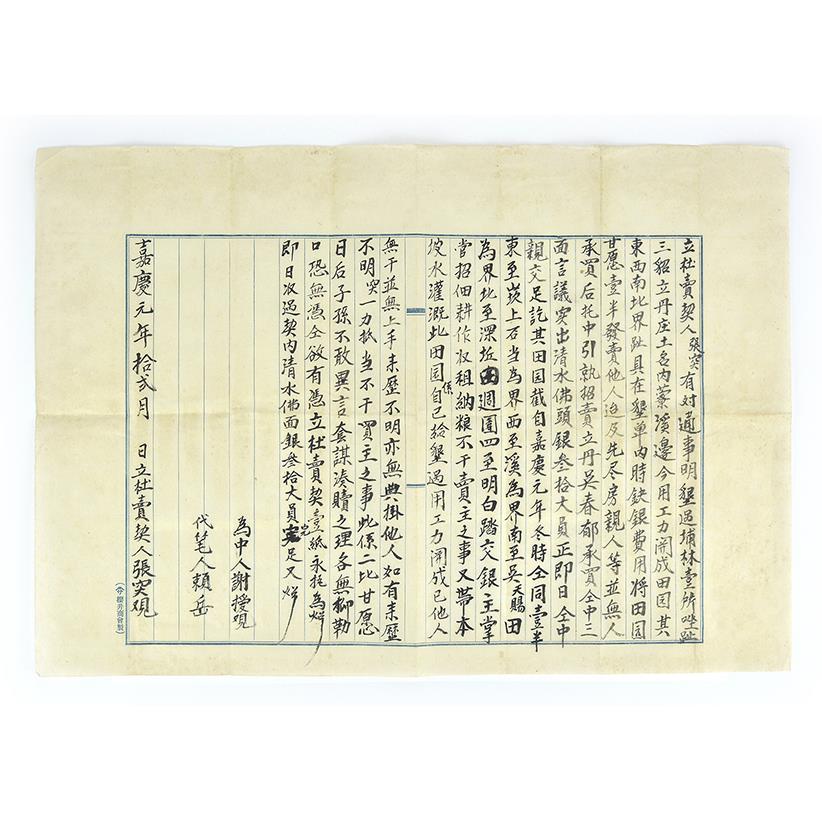 立杜賣契人張突有对通事明墾過埔林壹所坐址
三貂立丹庄土名內藔溪邊今用工力開成田园其
東西南北界趾具在墾單内時欠銀費用將田园
甘愿壹半發賣他人迨及先尽房親人等並無人
承買后托中引就招賣立丹吳春郁承買仝中三
面言議突出清水佛頭銀叁拾大員正即日仝中
親交足訖其田园截自嘉慶元年冬時仝同壹半
東至崁上石当為界西至溪為界南至吳天賜田
為界北至深坵週圍四至明白踏交銀主掌
管招佃耕作收租納粮不干賣主之事又帶本
坡水灌溉此田园係自己給墾過用工力開成已他人
無干並無上手来歷不明亦無典掛他人如有来歷
不明突一力抵当不干買主之事此係二比甘愿
日后子孫不敢異言套謀湊贖之理各無抑勒
口恐無憑仝欲有憑立杜賣契壹紙永托為炤
即日收過契内清水佛面銀叁拾大員完足又炤
為中人謝授观
代笔人賴岳
嘉慶元年拾弍月 日立杜賣契人張突观
櫻井商會製